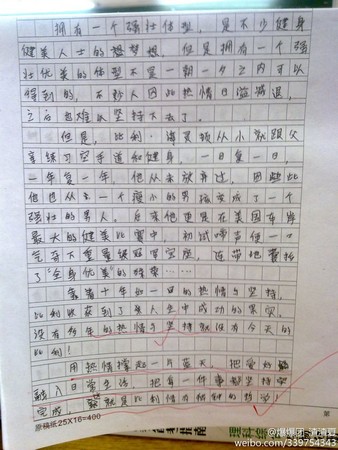 拥有一个强壮体型,是不少健身
健美人士的梦想。但是拥有一个强
壮优美的体型不是一朝一夕之内可以
得到的,不少人因此热情日益减退,
之后也难以坚持下去了。
但是,比利·海灵顿从小就跟父
亲练习空手道和健身,一日复一日,
一年复一年,他从未放弃过,因此
他也从一个瘦小的男孩变成了一个
强壮的男人。后来他更是在美国
最大的健美比赛中,初试啼声便一
气夺下重量级冠军宝座,
了"全身优美"的
靠着十年如一日的热情与坚持,
比利收获到了人生中成功的果实,
没有多年的热情与坚持就没有今天的
比利!
用热情撑起一片蓝天,把爱好
融入日常生活,把每一件事都坚持
完成,就是比利
原稿纸25X16=400
第
指南
@爆爆团-渣渣夏
weibo.com/339754343